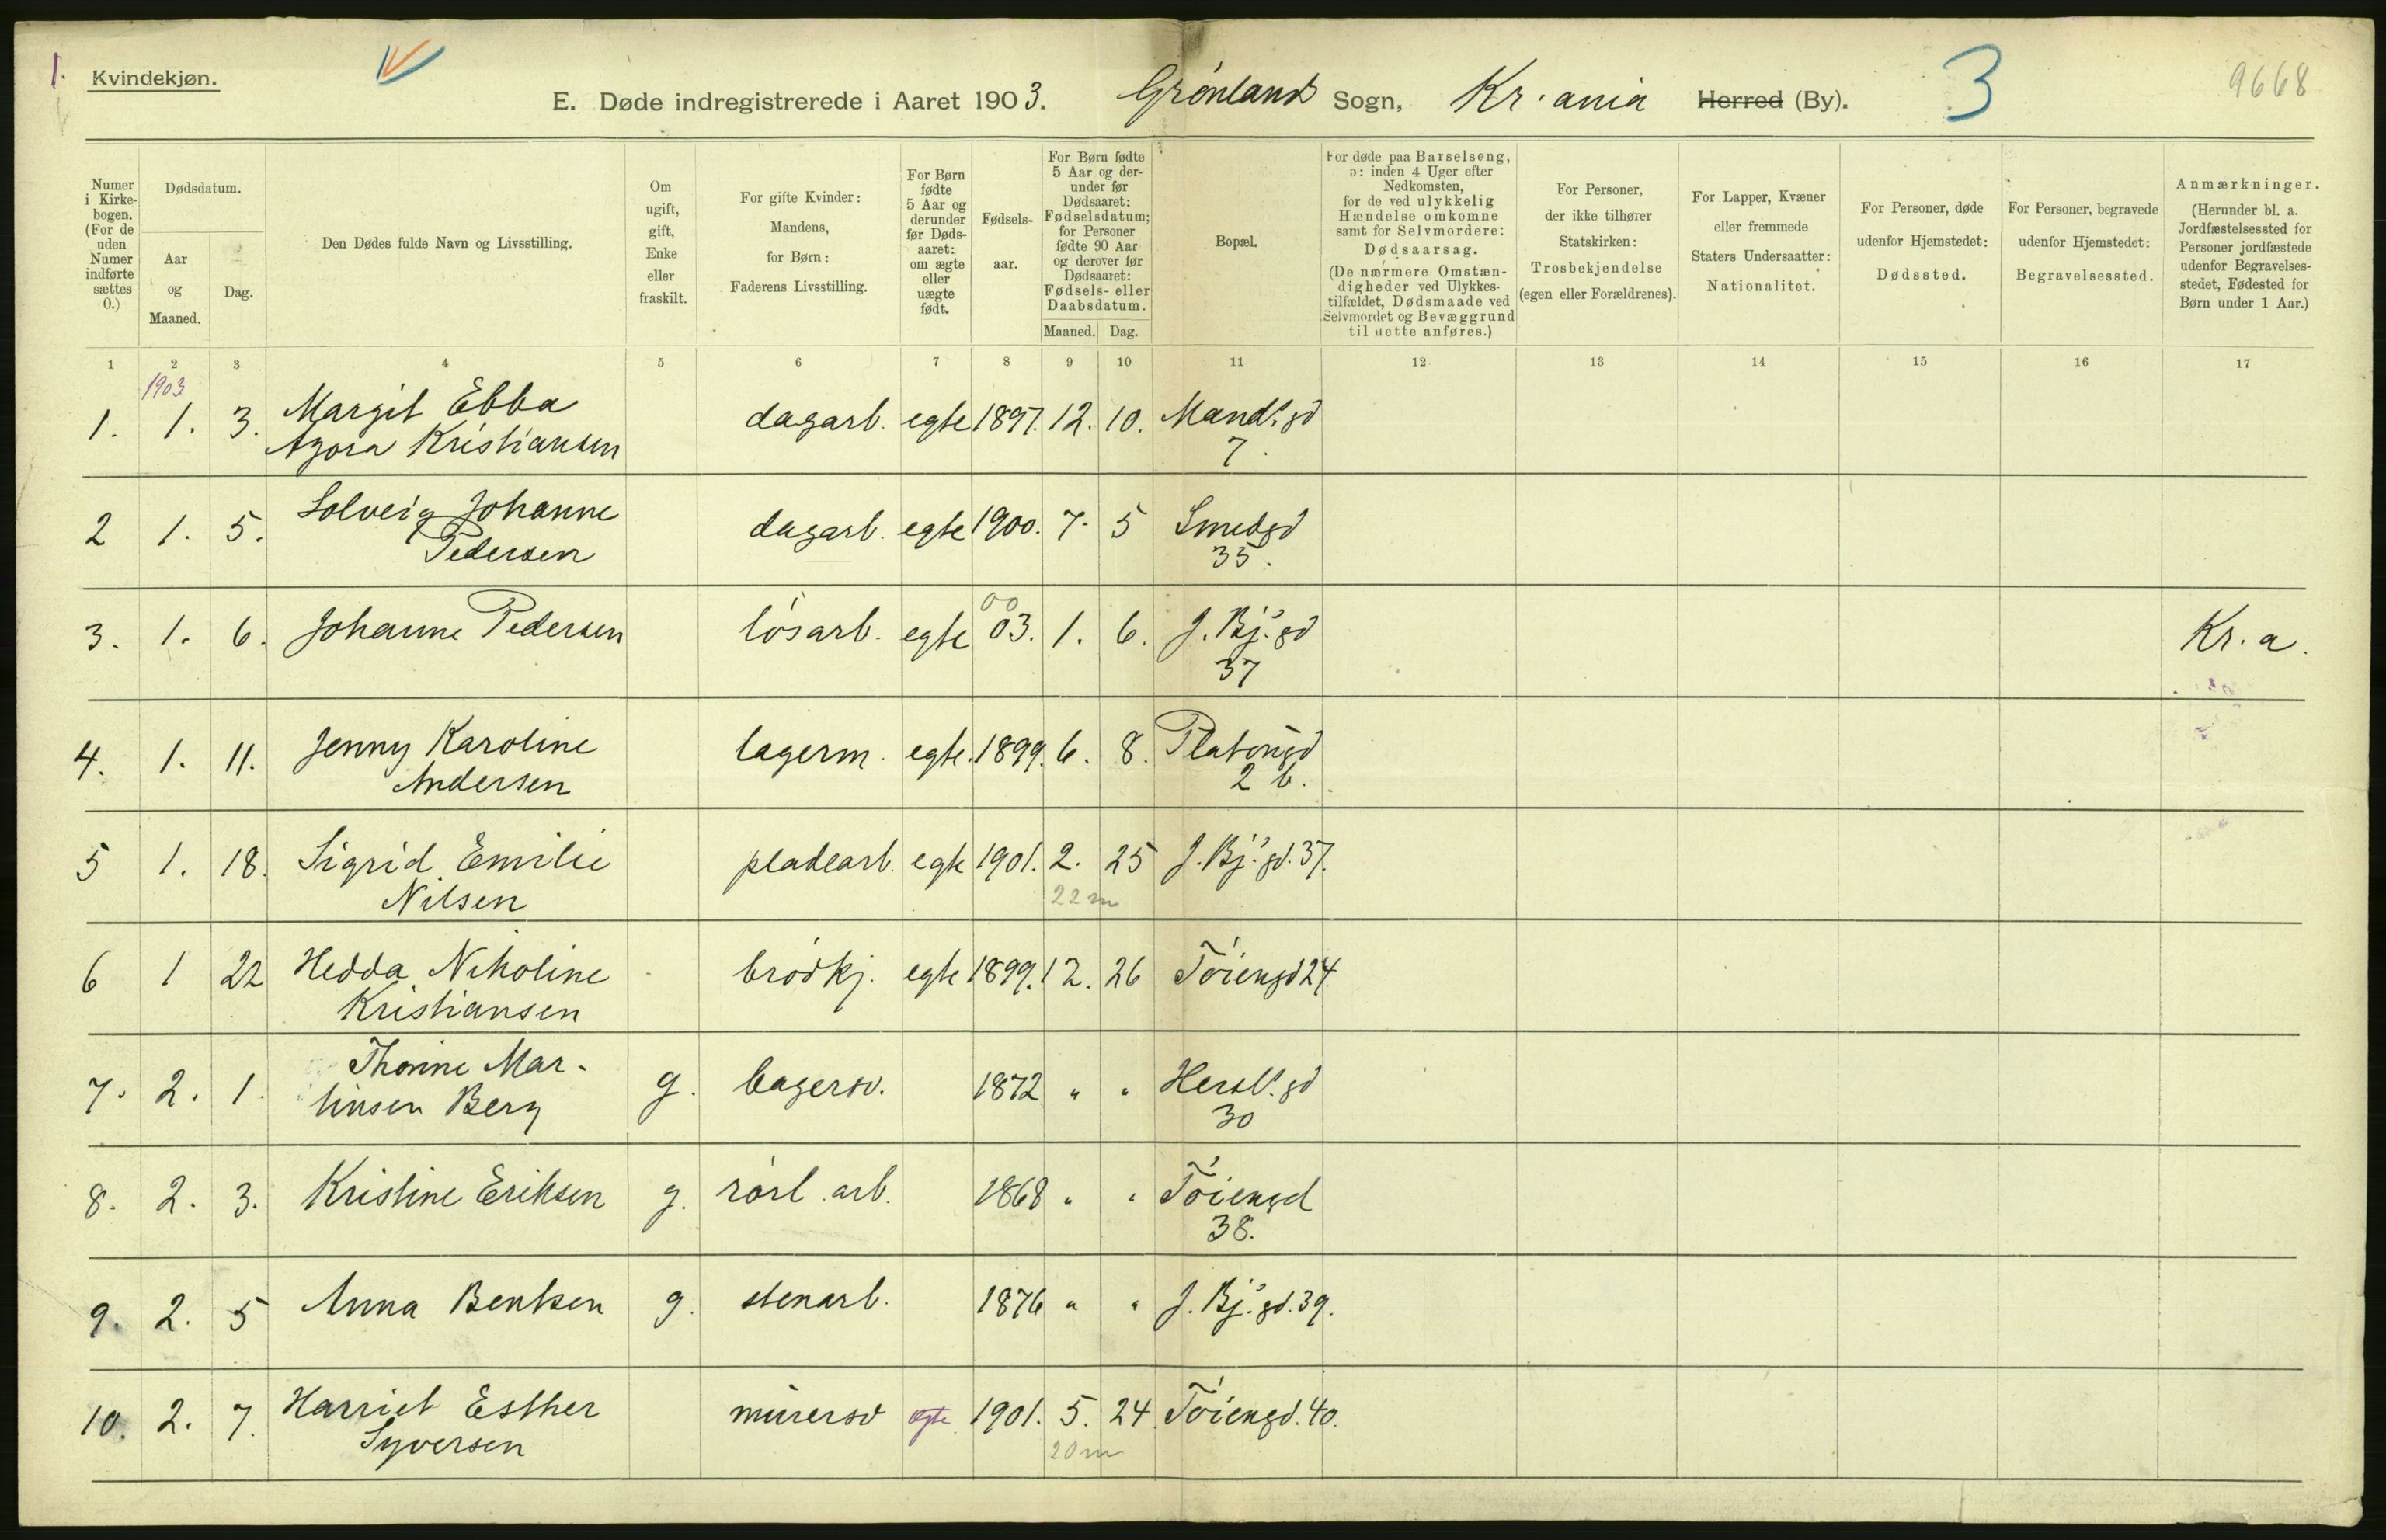 1.
Kvindekjøn.
E. Døde indregistrerede i Aaret 1903. Grønland Sogn, Kr.ania Herred (By).
3
9668
Numer i Kirke-bogen. (For de uden Numer indførte sættes 0.)
Dødsdatum.
Aar og Maaned.
Dag.
Den Dødes fulde Navn og Livsstilling.
Om ugift, gift, Enke eller fraskilt.
For gifte Kvinder: Mandens, for Børn: Faderens Livsstilling.
For Børn fødte 5 Aar og derunder før Døds-aaret: om ægte eller uægte født.
Fødsels-aar.
For Børn fødte 5 Aar og der-under før Dødsaaret: Fødselsdatum; for Personer fødte 90 Aar og derover før Dødsaaret: Fødsels- eller Daabsdatum.
Maaned. Dag.
Bopæl.
For døde paa Barselseng, ɔ: inden 4 Uger efter Nedkomsten, for de ved ulykkelig Hændelse omkomne samt for Selvmordere: Dødsaarsag. (De nærmere Omstæn-digheder ved Ulykkes-tilfældet, Dødsmaade ved Selvmordet og Bevæggrund til dette anføres.)
For Personer, der ikke tilhører Statskirken: Trosbekjendelse (egen eller Forældrenes).
For Lapper, Kvæner eller fremmede Staters Undersaatter: Nationalitet.
For Personer, døde udenfor Hjemstedet: Dødssted.
For Personer, begravede udenfor Hjemstedet: Begravelsessted.
Anmærkninger. (Herunder bl. a. Jordfæstelsessted for Personer jordfæstede udenfor Begravelses-stedet, Fødested for Børn under 1 Aar.)
1 2 3 4 5 6 7 8 9 10 11 12 13 14 15 16 17
1903
1. 1. 3. Margit Ebba dagarb. egte 1897. 12. 10. Mandls gd
Agora Kristiansen 7.
2 1. 5. Solveig Johanne dagarb. egte 1900. 7. 5 Smedgd
Pedersen 35.
00
3. 1. 6. Johanne Pedersen løsarb. egte 03. 1. 6. J. Bj.s gd Kr.a.
37
4. 1. 11. Jenny Karoline lagerm. egte. 1899. 6. 8. Platousgd
Andersen 2 b.
5 1. 18. Sigrid Emilie pladearb. egte 1901. 2. 25 J. Bj.s gd. 37.
Nilsen 22 m
6 1 22 Hedda Nikoline brødkj. egte 1899. 12. 26 Tøiengd 24.
Kristiansen
7. 2. 1. Thorine Mar-
tinsen Berg g. bagersv. 1872 " " Hersl.s gd
30
8. 2. 3. Kristine Eriksen g. rørl. arb. 1868 " " Tøiengd
38.
9. 2. 5 Anna Bentsen g. stenarb. 1876 " " J. Bj.s gd. 39.
10. 2. 7. Harriet Esther murersv egte 1901. 5. 24. Tøiengd. 40.
Syversen 20 m